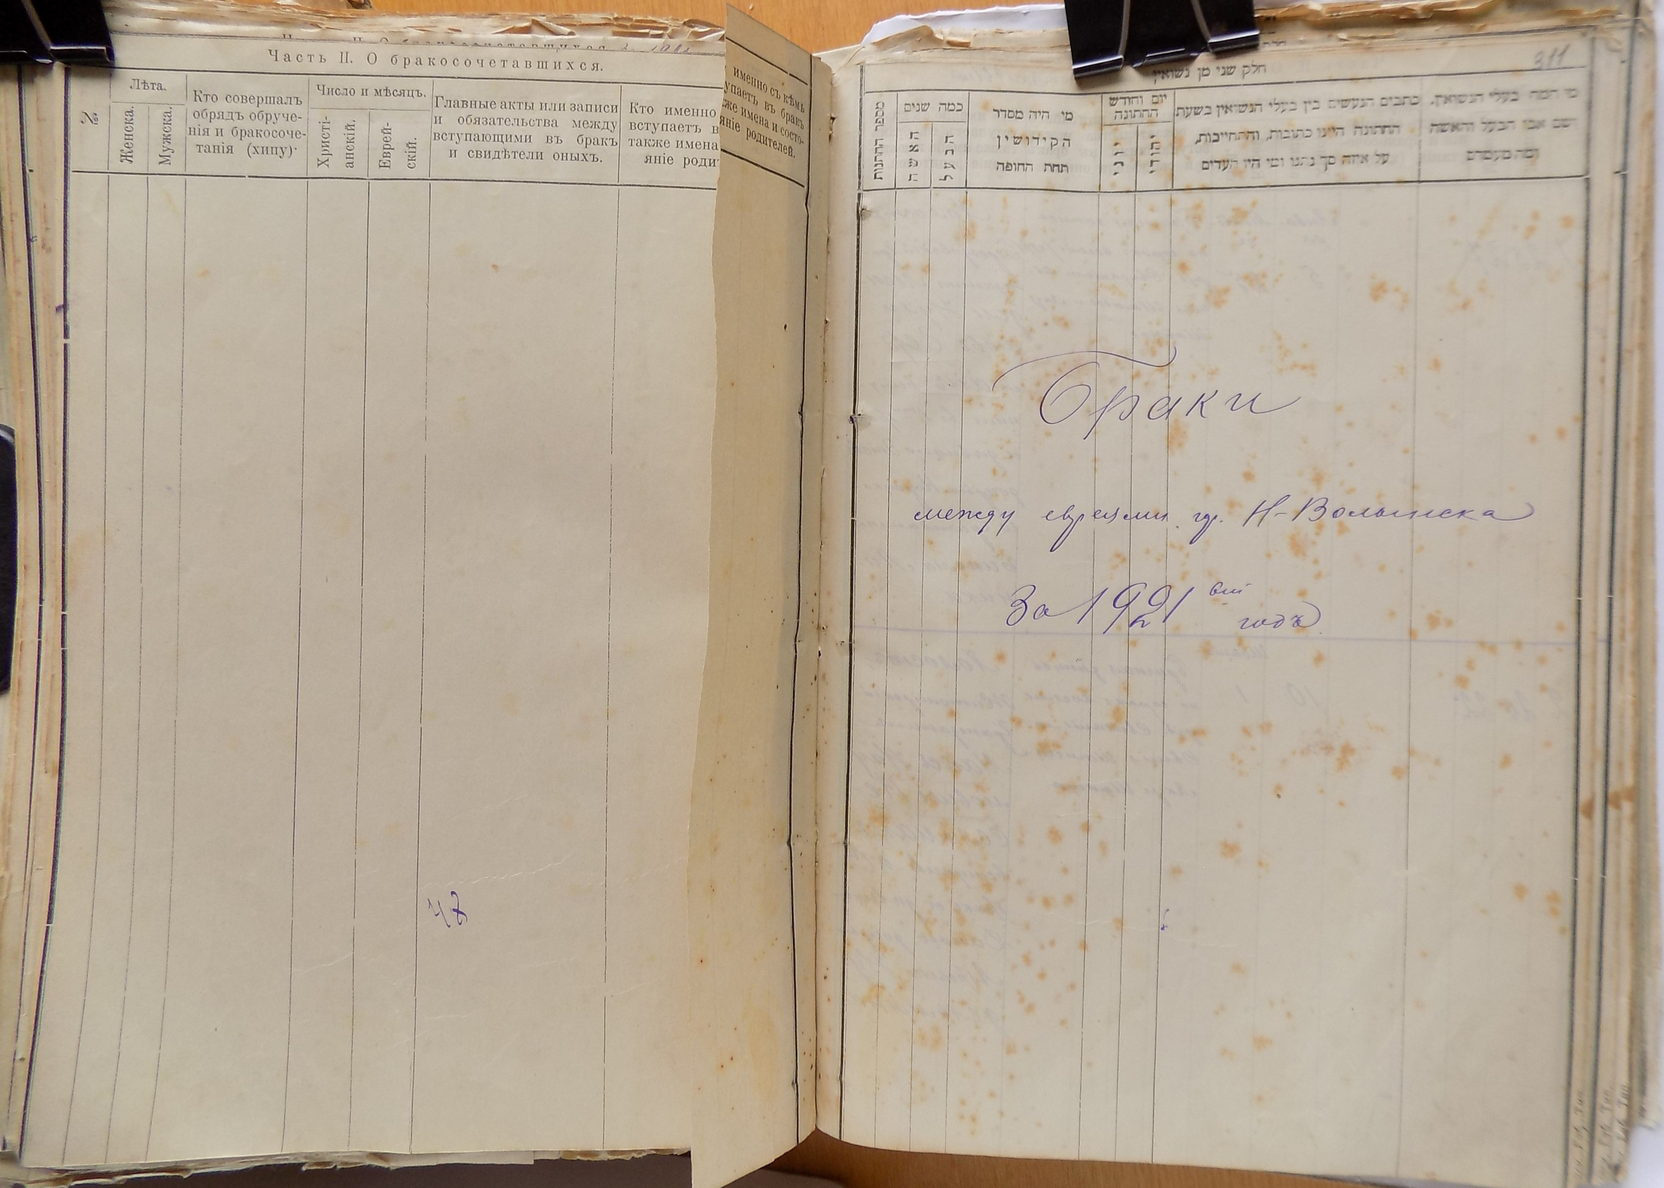 Часть II. О бракосочетавшихся.
№
Лѣта.
Женска.
Мужска.
Кто совершалъ
обрядъ обруче-
нія и бракосоче-
танія (хипу)
Число и мѣсяцъ.
Христі-
анскій.
Еврей-
скій.
Главные акты или записи
и обязательства между
вступающими въ бракъ
и свидѣтели оныхъ.
Кто именно
вступаетъ в
также имена
яніе роди
именно съ кѣмъ
упаетъ въ бракъ
же имена и состо-
яніе родителей.
48
311
חלק שני מן נשואין
מספר החתנות
כמה שנים
האשה
הבעל
מי היה מסדר
הקידושין
תחת החופה
יום וחודש
החתונה
יוני
יהודי
כתבים הנעשים בין בעלי הנשואין בשעת
החתונה היינו כתובות, והתחייבות,
על איזה סך נתנו ומי היו העדים
מי המה בעלי הנשואין,
ושם אבי הבעל והאשה
ומה מעמדם
Браки
между евреями гр. Н-Волынска
За 1921 вый годъ